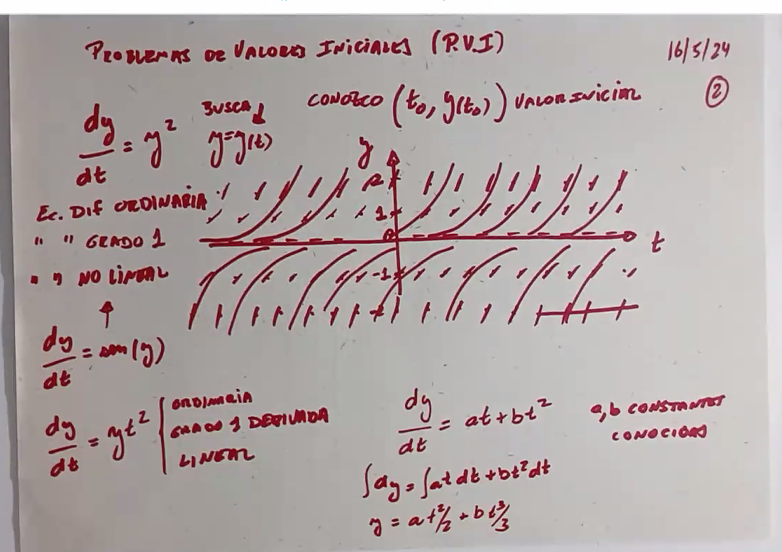 PROBLEMAS DE VALORES INICIALES (P.V.I)
16/5/24
2
dy/dt = y²
BUSCA
y=y(t)
CONOZCO (t₀, y(t₀)) VALOR INICIAL
Ec. DIF ORDINARIA
" " GRADO 1
" " NO LINEAL
y
2
1
0
-1
t
dy/dt = sen(y)
dy/dt = yt²
ORDINARIA
GRADO 1 DERIVADA
LINEAL
dy/dt = at + bt²
a, b CONSTANTES
CONOCIDAS
∫dy = ∫at dt + bt² dt
y = a t²/2 + b t³/3